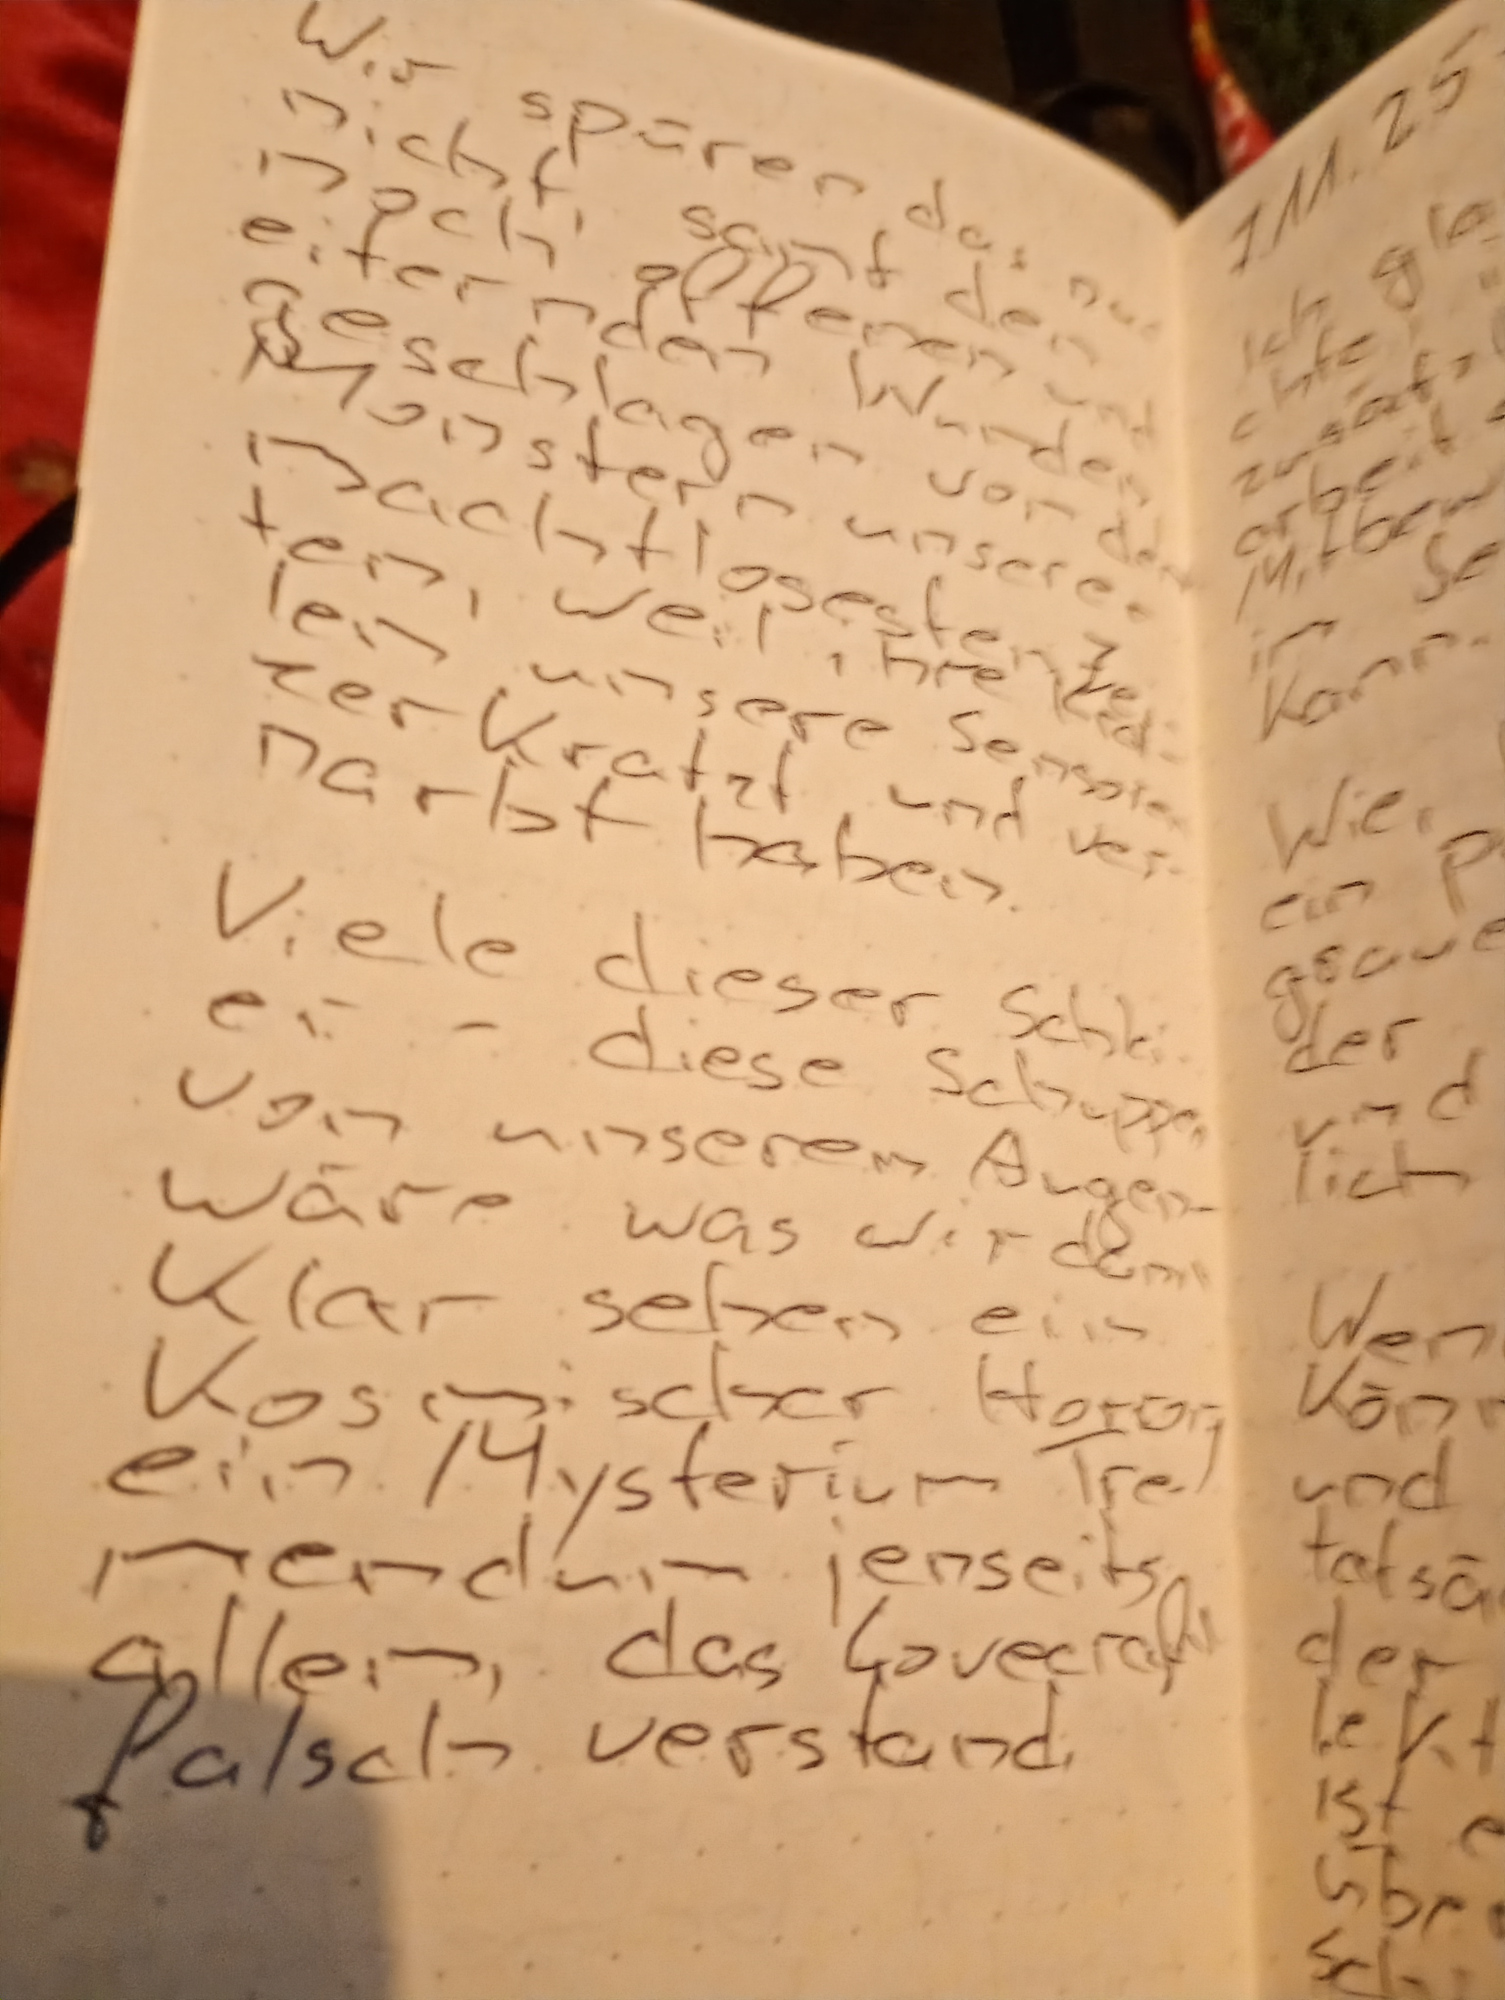 Wir spüren das nur
nicht, samt den
noch offenen und
eiternden Wunden
geschlagen von den
Monstern unserer
machtlosesten Zei
ten, weil ihre
len unsere Sensorien
zerkratzt und ver-
narbt haben.
Viele dieser Schlei
er - diese Schuppen
von unserem Augen -
wäre was wir dann
klar sehen ein
Kosmischer Horor,
ein Mysterium Tre
mendum jenseits
allem, das Lovecraft
falsch verstand.
7.11.25
ich gla
chte
zusätz
arbeit
Mitbew
in Se
kann.
Wie,
ein p
gsaue
der
und
lich
Wen
könn
und
tatsä
der
lekt
ist e
übe
sch